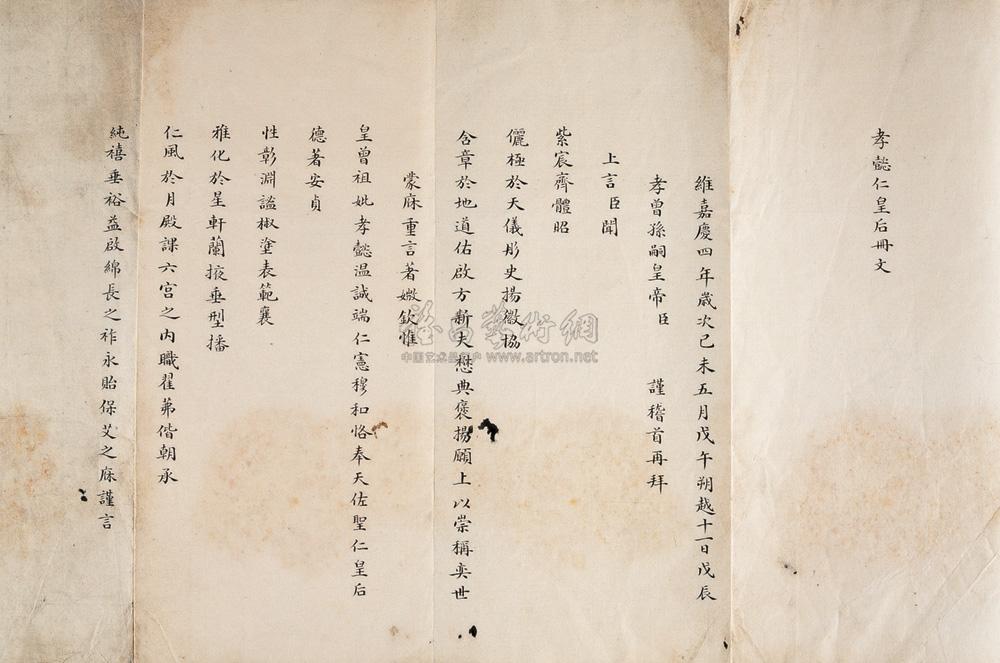 孝懿仁皇后冊文
維嘉慶四年歲次己未五月戊午朔越十一日戊辰
孝曾孫嗣皇帝臣 謹稽首再拜
上言臣聞
紫宸齊體昭
儷極於天儀彤史揚徽協
含章於地道佑啟方新夫懋典褒揚願上以崇稱奕世
蒙庥重言著媺欽惟
皇曾祖妣孝懿温誠端仁憲穆和恪奉天佐聖仁皇后
德著安貞
性彰淵謐椒塗表範襄
雅化於星軒蘭掖垂型播
仁風於月殿課六宮之內職翟茀偕朝承
純禧垂裕益啟綿長之祚永貽保艾之庥謹言
雅昌藝術網
中国艺术品门户 www.artron.net